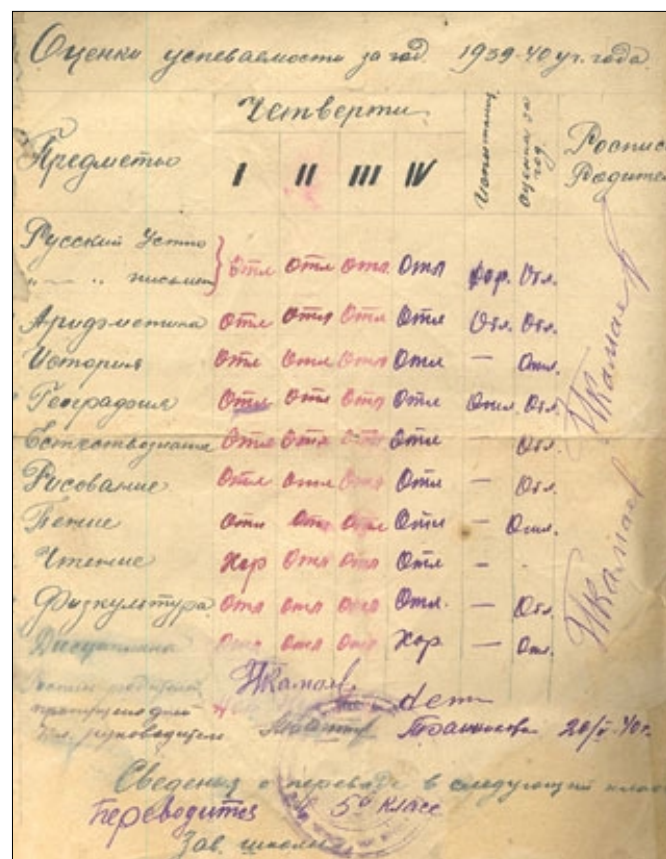 Оценки успеваемости за год 1939-40 уч. года.
Четверти
Предметы I II III IV Испытания Оценки за год Роспис Родител
Русский Устно
„ — „ письмен } Отл Отл Отл. Отл Хор. Отл.
Арифметика Отл Отл Отл Отл Отл. Отл.
История Отл Отл Отл Отл — Отл.
География Отл Отл Отл Отл Отл. Отл.
Естествознание Отл Отл Отл Отл — Отл.
Рисование Отл Отл Отл Отл — Отл.
Пение Отл Отл Отл Отл — Отл.
Чтение Хор Отл Отл Отл -
Физкультура Отл Отл Отл Отл. — Отл.
Дисциплина Отл Отл Отл Хор. — Отл.
Роспис родителей
пропущено дней нет
Кл. руководитель 20/V-40г.
Сведения о переводе в следующий класс
Переводится в 5й класс
Зав. школы